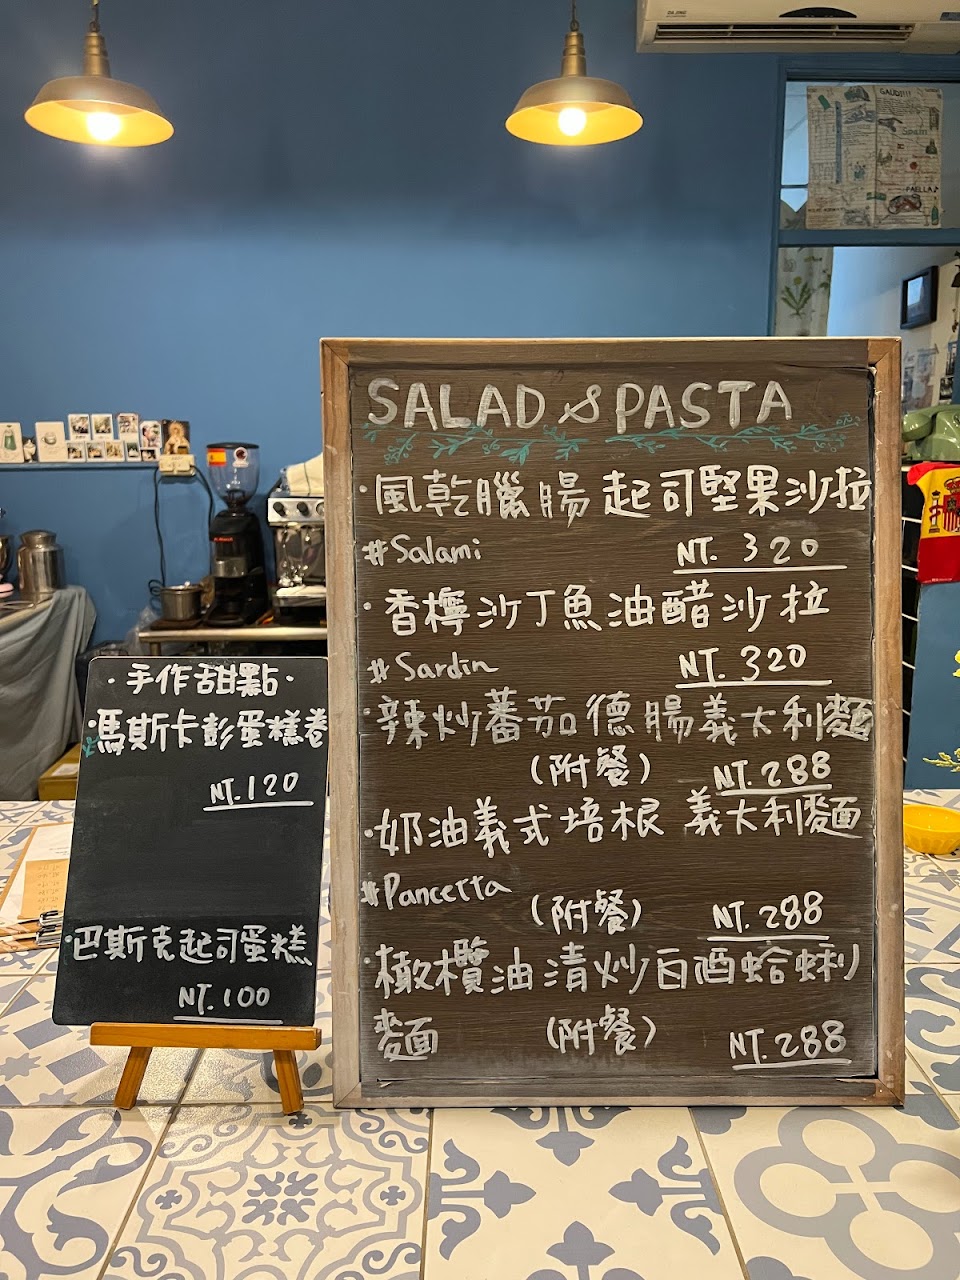 GAUDI!!!
PAELLA
SALAD & PASTA
·風乾臘腸起司堅果沙拉
#Salami NT. 320
·香檸沙丁魚油醋沙拉
#Sardin NT. 320
·辣炒蕃茄德腸義大利麵
(附餐) NT. 288
·奶油義式培根 義大利麵
#Pancetta (附餐) NT. 288
·橄欖油清炒白酒蛤蜊
麵 (附餐) NT. 288
·手作甜點·
·馬斯卡彭蛋糕卷
NT. 120
·巴斯克起司蛋糕
NT. 100